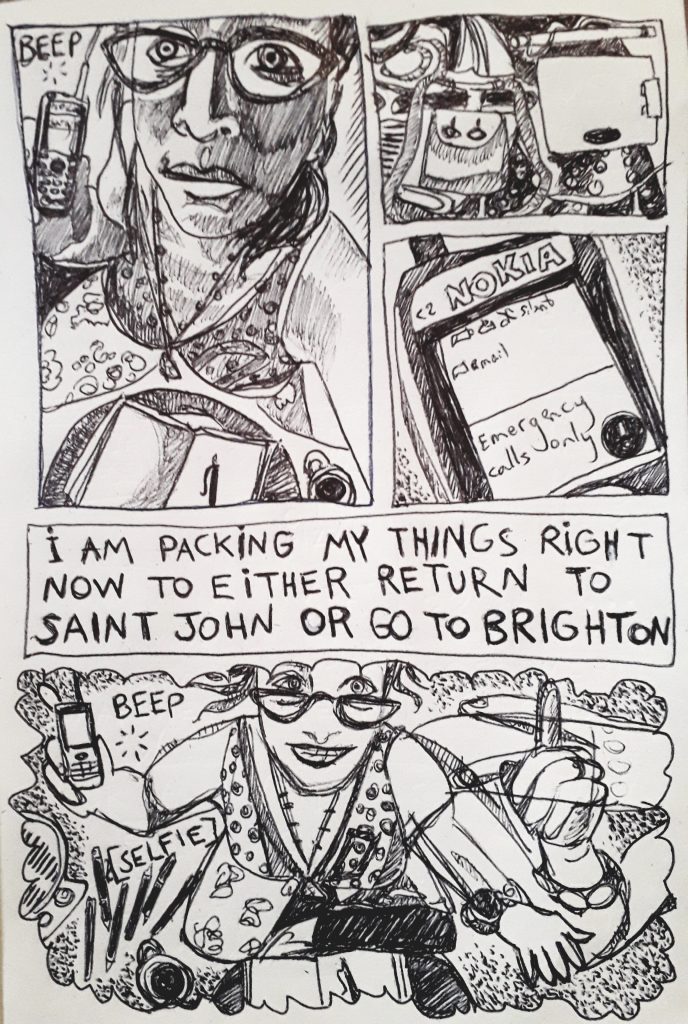 BEEP
c2 NOKIA
silent
email
Emergency
calls only
i AM PACKiNG MY THINGS RiGHT
NOW TO EiTHER RETURN TO
SAINT JOHN OR GO TO BRIGHTON
BEEP
[SELFIE]